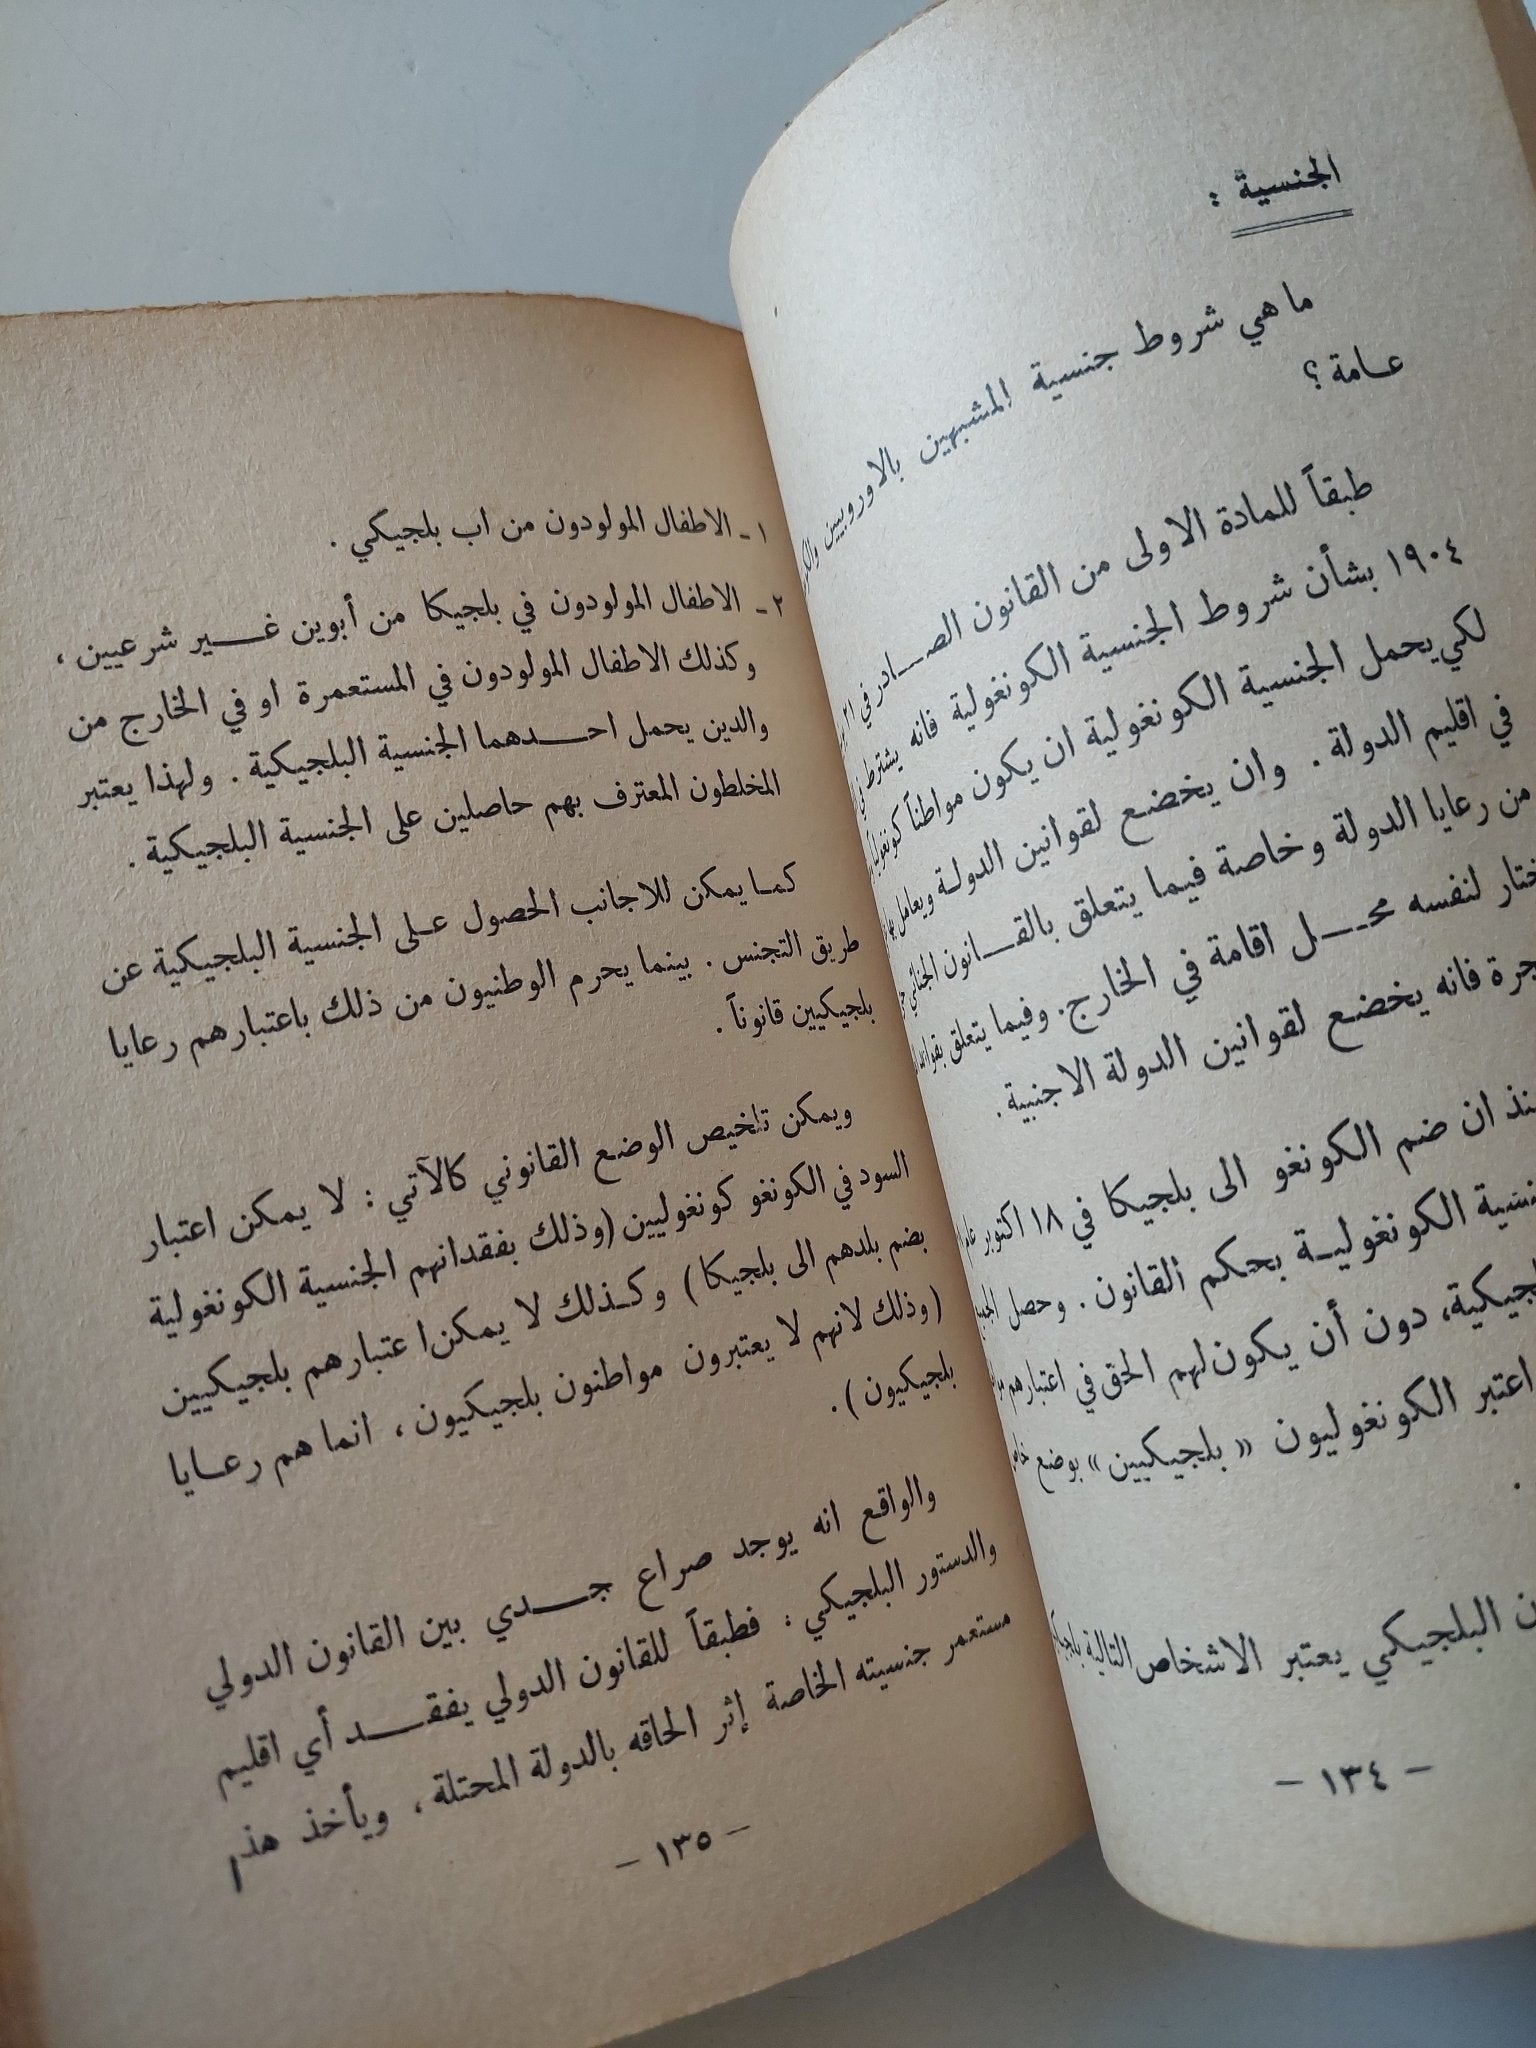 الجنسية :
ما هي شروط جنسية المشبهين بالاوروبيين
عـامة ؟
طبقاً للمادة الاولى من القانون الصـــادر في ٢١
١٩٠٤ بشأن شروط الجنسية الكونغولية فانه يشترط في
لكي يحمل الجنسية الكونغولية ان يكون مواطناً كونغولياً
في اقليم الدولة . وان يخضع لقوانين الدولة ويعامل
من رعايا الدولة وخاصة فيما يتعلق بالقـــانون الجنائي
لنفسه محـــل اقامة في الخارج . وفيما يتعلق بقواعد
فانه يخضع لقوانين الدولة الاجنبية .
ان ضم الكونغو الى بلجيكا في ١٨ اكتوبر عام
الكونغوليـة بحكم القانون . وحصل
دون أن يكون لهم الحق في اعتبارهم
اعتبر الكونغوليون « بلجيكيين » بوضع خاص
.
البلجيكي يعتبر الاشخاص التالية
– ١٣٤ –
١ - الاطفال المولودون من اب بلجيكي .
٢ - الاطفال المولودون في بلجيكا من أبوين غـــير شرعيين ،
وكذلك الاطفال المولودون في المستعمرة او في الخارج من
والدين يحمل احـــدهما الجنسية البلجيكية . ولهذا يعتبر
المخلطون المعترف بهم حاصلين على الجنسية البلجيكية .
كمـا يمكن للاجانب الحصول عـلى الجنسية البلجيكية عن
طريق التجنس . بينما يحرم الوطنيون من ذلك باعتبارهم رعايا
بلجيكيين قانوناً .
ويمكن تلخيص الوضع القانوني كالآتي : لا يمكن اعتبار
السود في الكونغو كونغوليين (وذلك بفقدانهم الجنسية الكونغولية
بضم بلدهم الى بلجيكا) وكـذلك لا يمكن اعتبارهم بلجيكيين
(وذلك لانهم لا يعتبرون مواطنون بلجيكيون ، انما هم رعـايا
بلجيكيون) .
والواقع انه يوجد صراع جـــدي بين القانون الدولي
والدستور البلجيكي : فطبقاً للقانون الدولي يفقـــد أي اقليم
مستعمر جنسيته الخاصة إثر الحاقه بالدولة المحتلة ، ويأخذ هذ
– ١٣٥ –